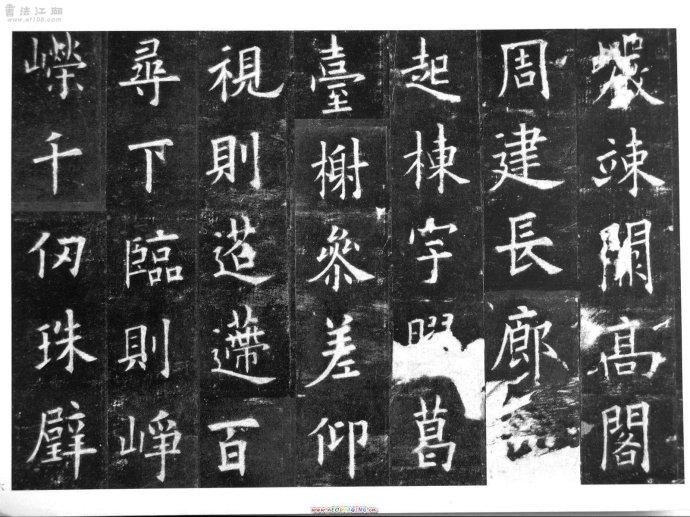 書法江湖
www.sf108.com
巖竦闕高閣
周建長廊
起棟宇葛
臺榭參差仰
視則迢遰百
尋下臨則崢
嶸千仞珠璧